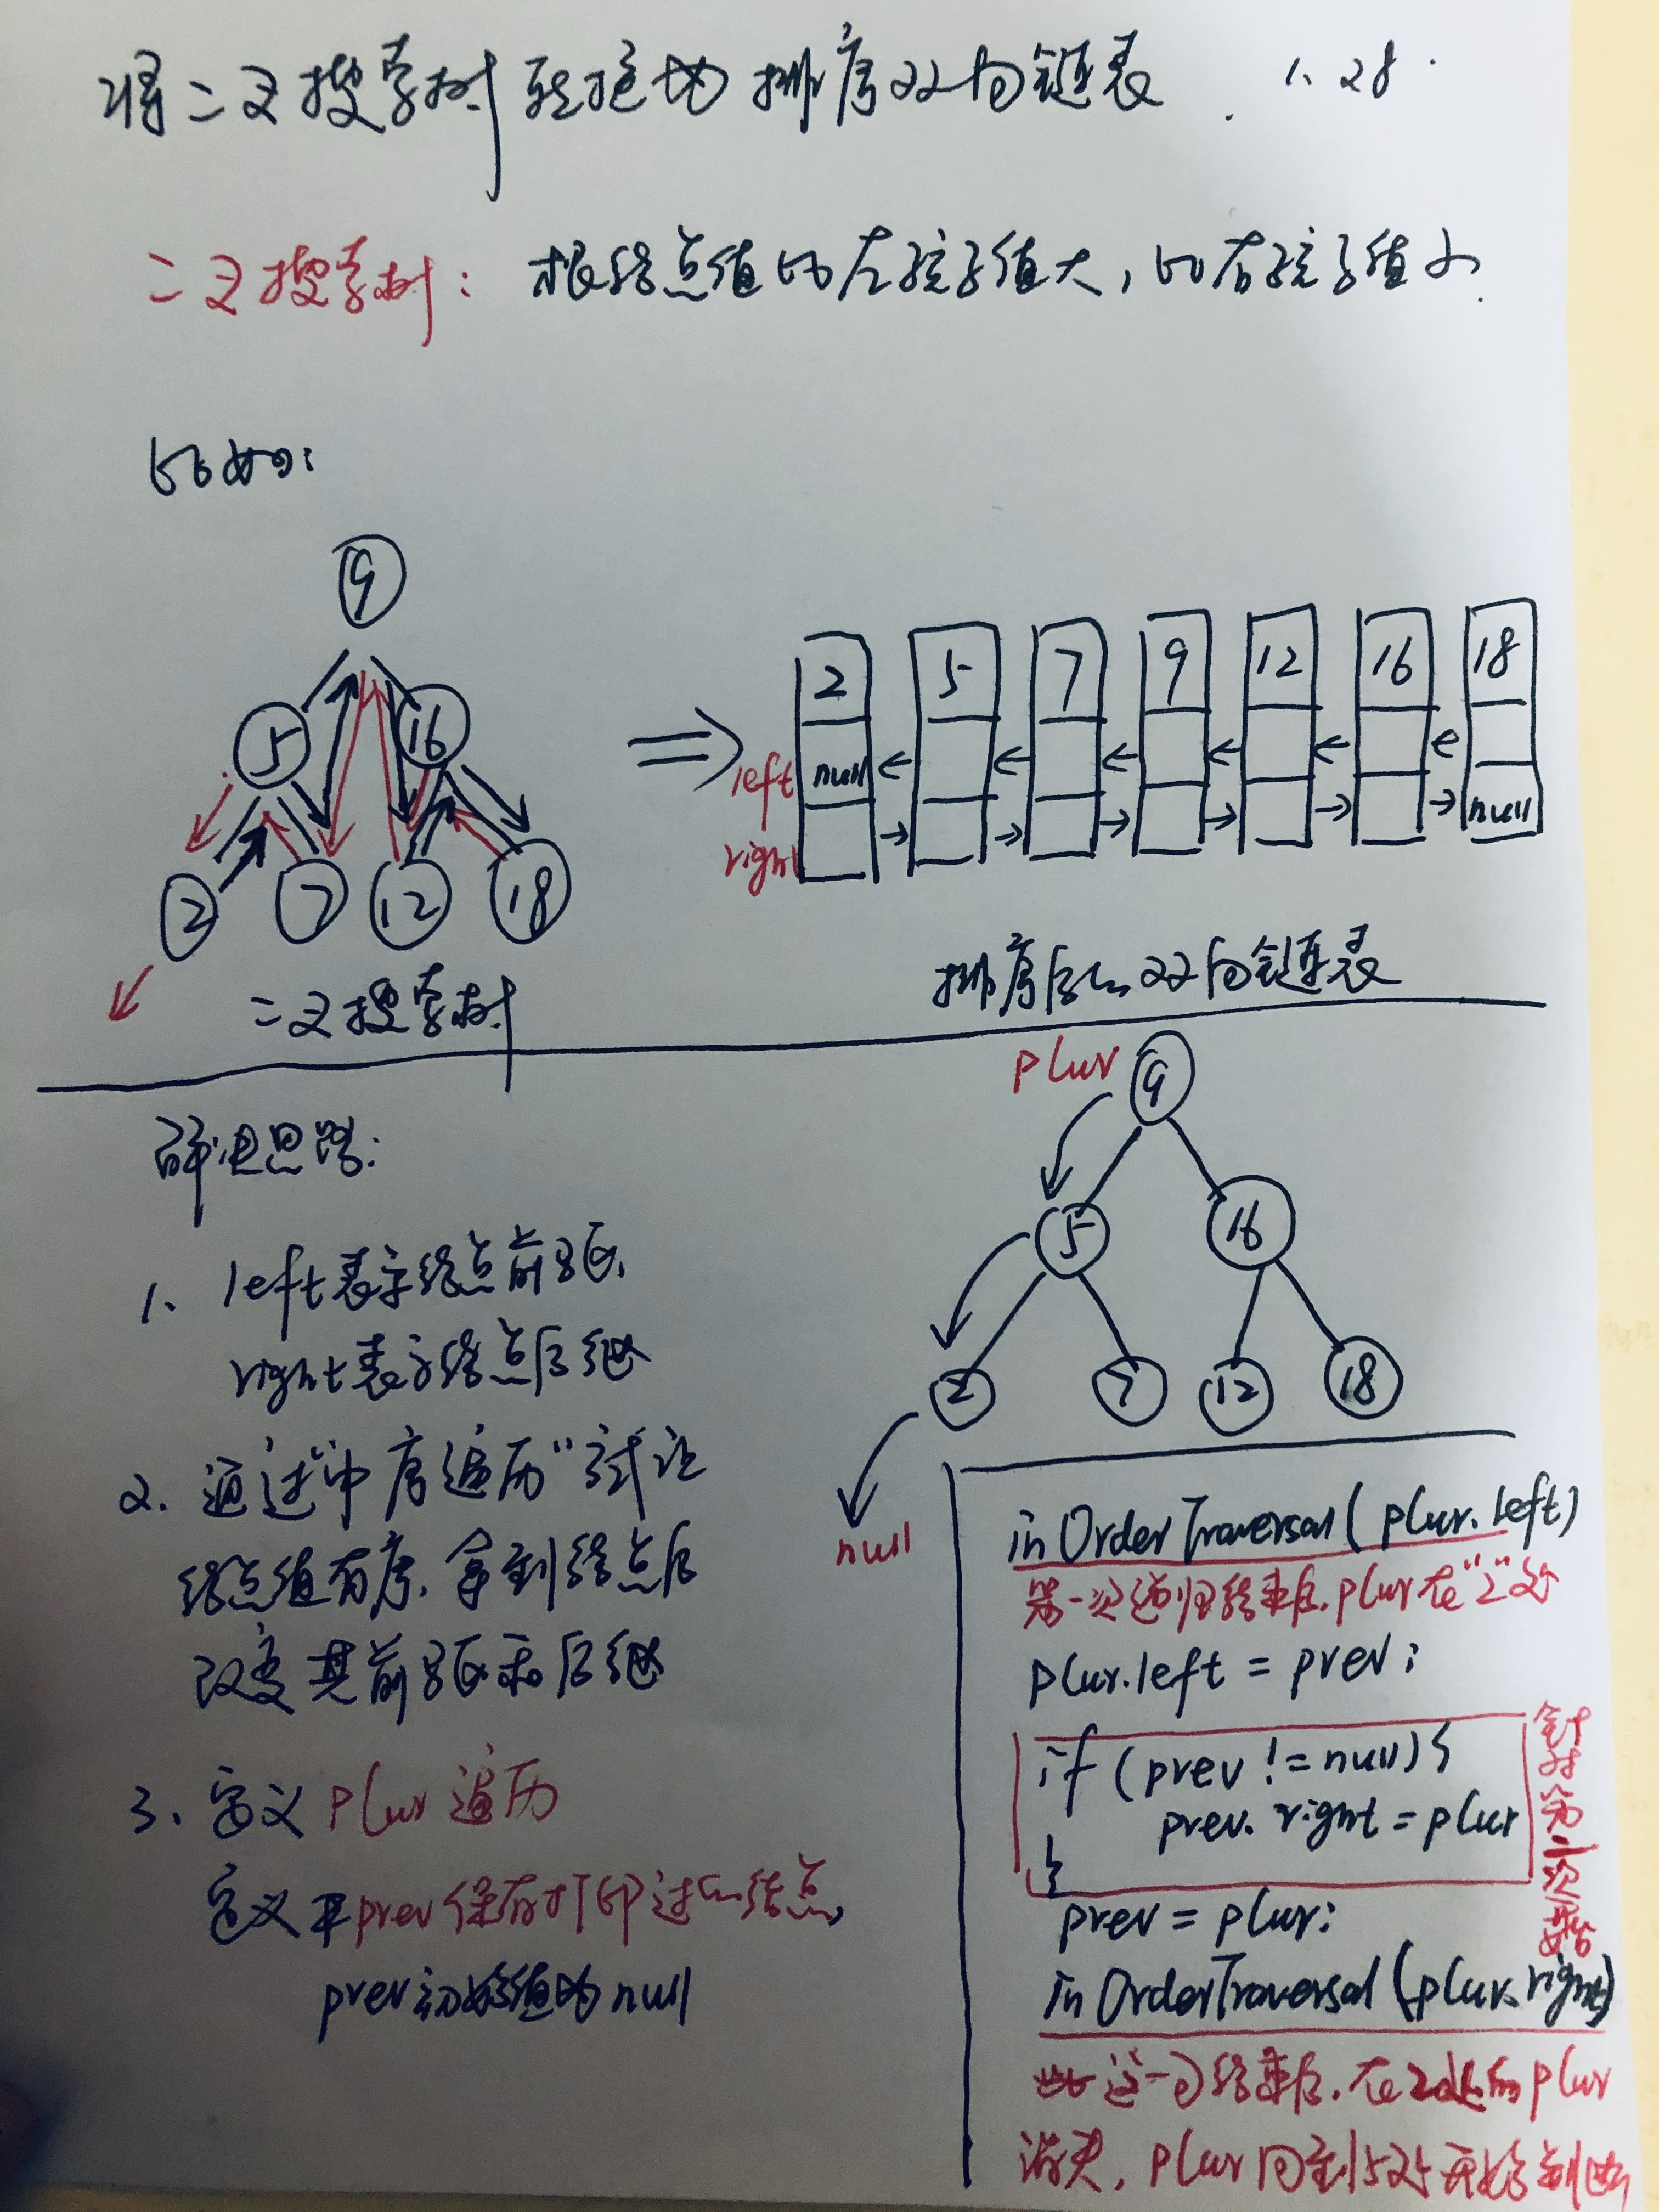 将二叉搜索树转换为排序双向链表. 1、28.
二叉搜索树: 根结点值比左孩子值大,比右孩子值小.
比如:
9
5 16
2 7 12 18
二叉搜索树
2 5 7 9 12 16 18
left null
right null
排序后的双向链表
解决思路:
1、left表示结点前驱,
right表示结点后继
2. 通过"中序遍历"试让
结点值有序,拿到结点后
改变其前驱和后继
3、定义pCur遍历
定义prev保存打印过的结点,
prev初始值为null
pCur 9
5 16
2 7 12 18
null
inOrderTraversal(pCur.left)
第一次递归结束后,pCur在"2"处
pCur.left = prev;
if (prev != null){
prev.right = pCur
}
针对第二次开始
prev = pCur;
inOrderTraversal(pCur.right)
这一句结束后,在2处的pCur
消失,pCur回到5处开始